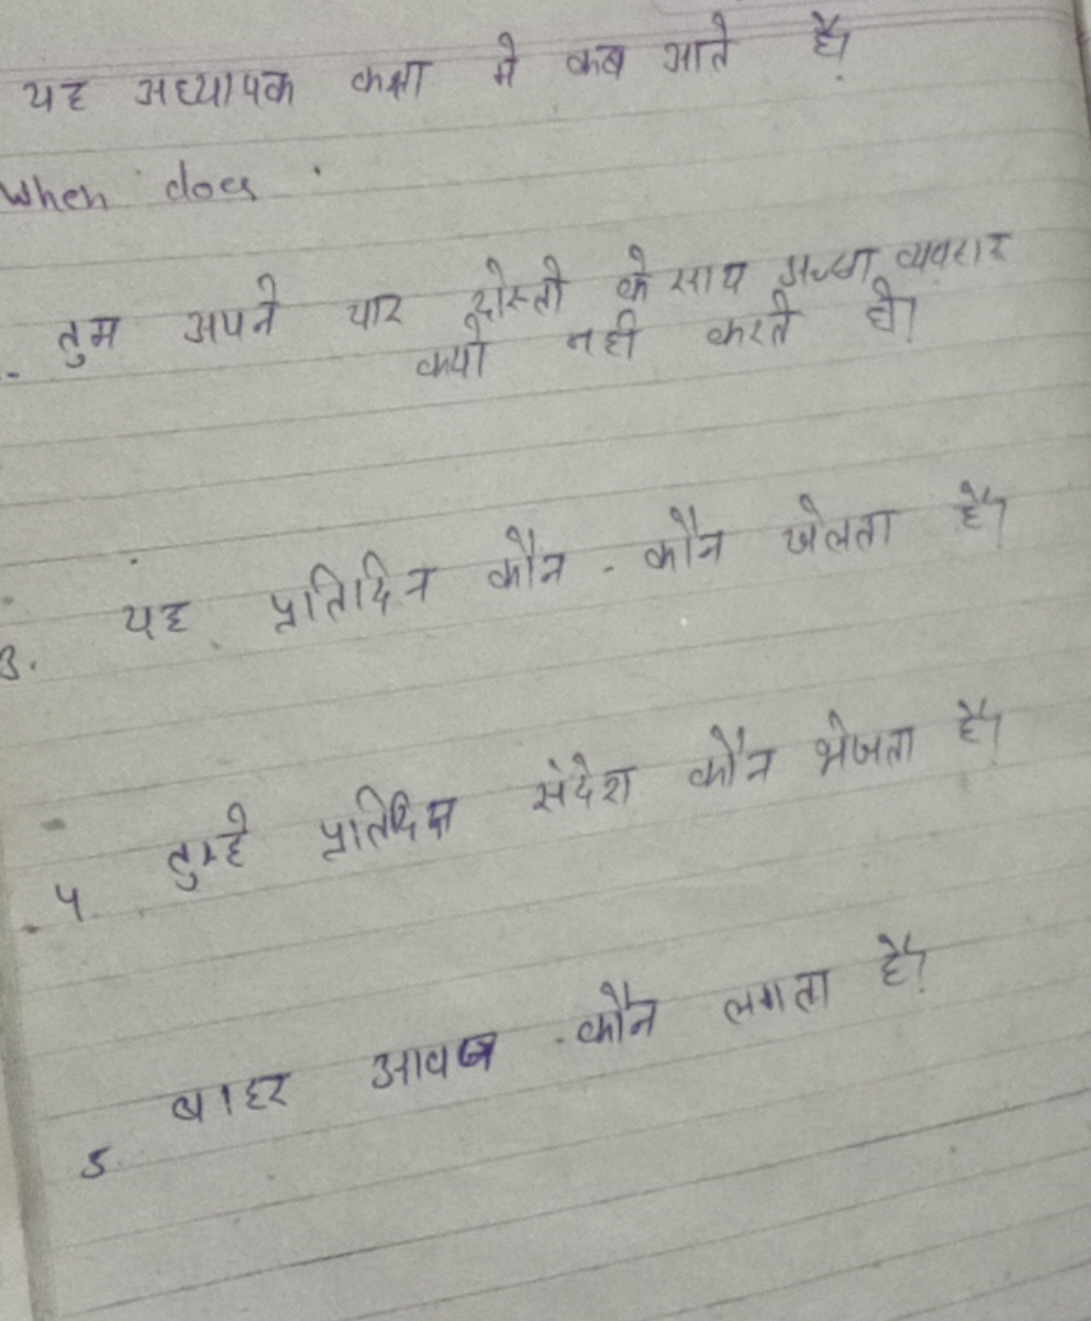 यह अध्यापक कक्षा मे कब आते है?
When does
तुम अपने यार दोस्तो के साथ अच्छा व्यवहार
क्यो नही करते हो?
3. यह प्रतिदिन कौन - कौन खेलता है?
4 तुम्हे प्रतिदिन संदेश कौन भेजता है?
5 बाहर आवाज कौन लगता है?